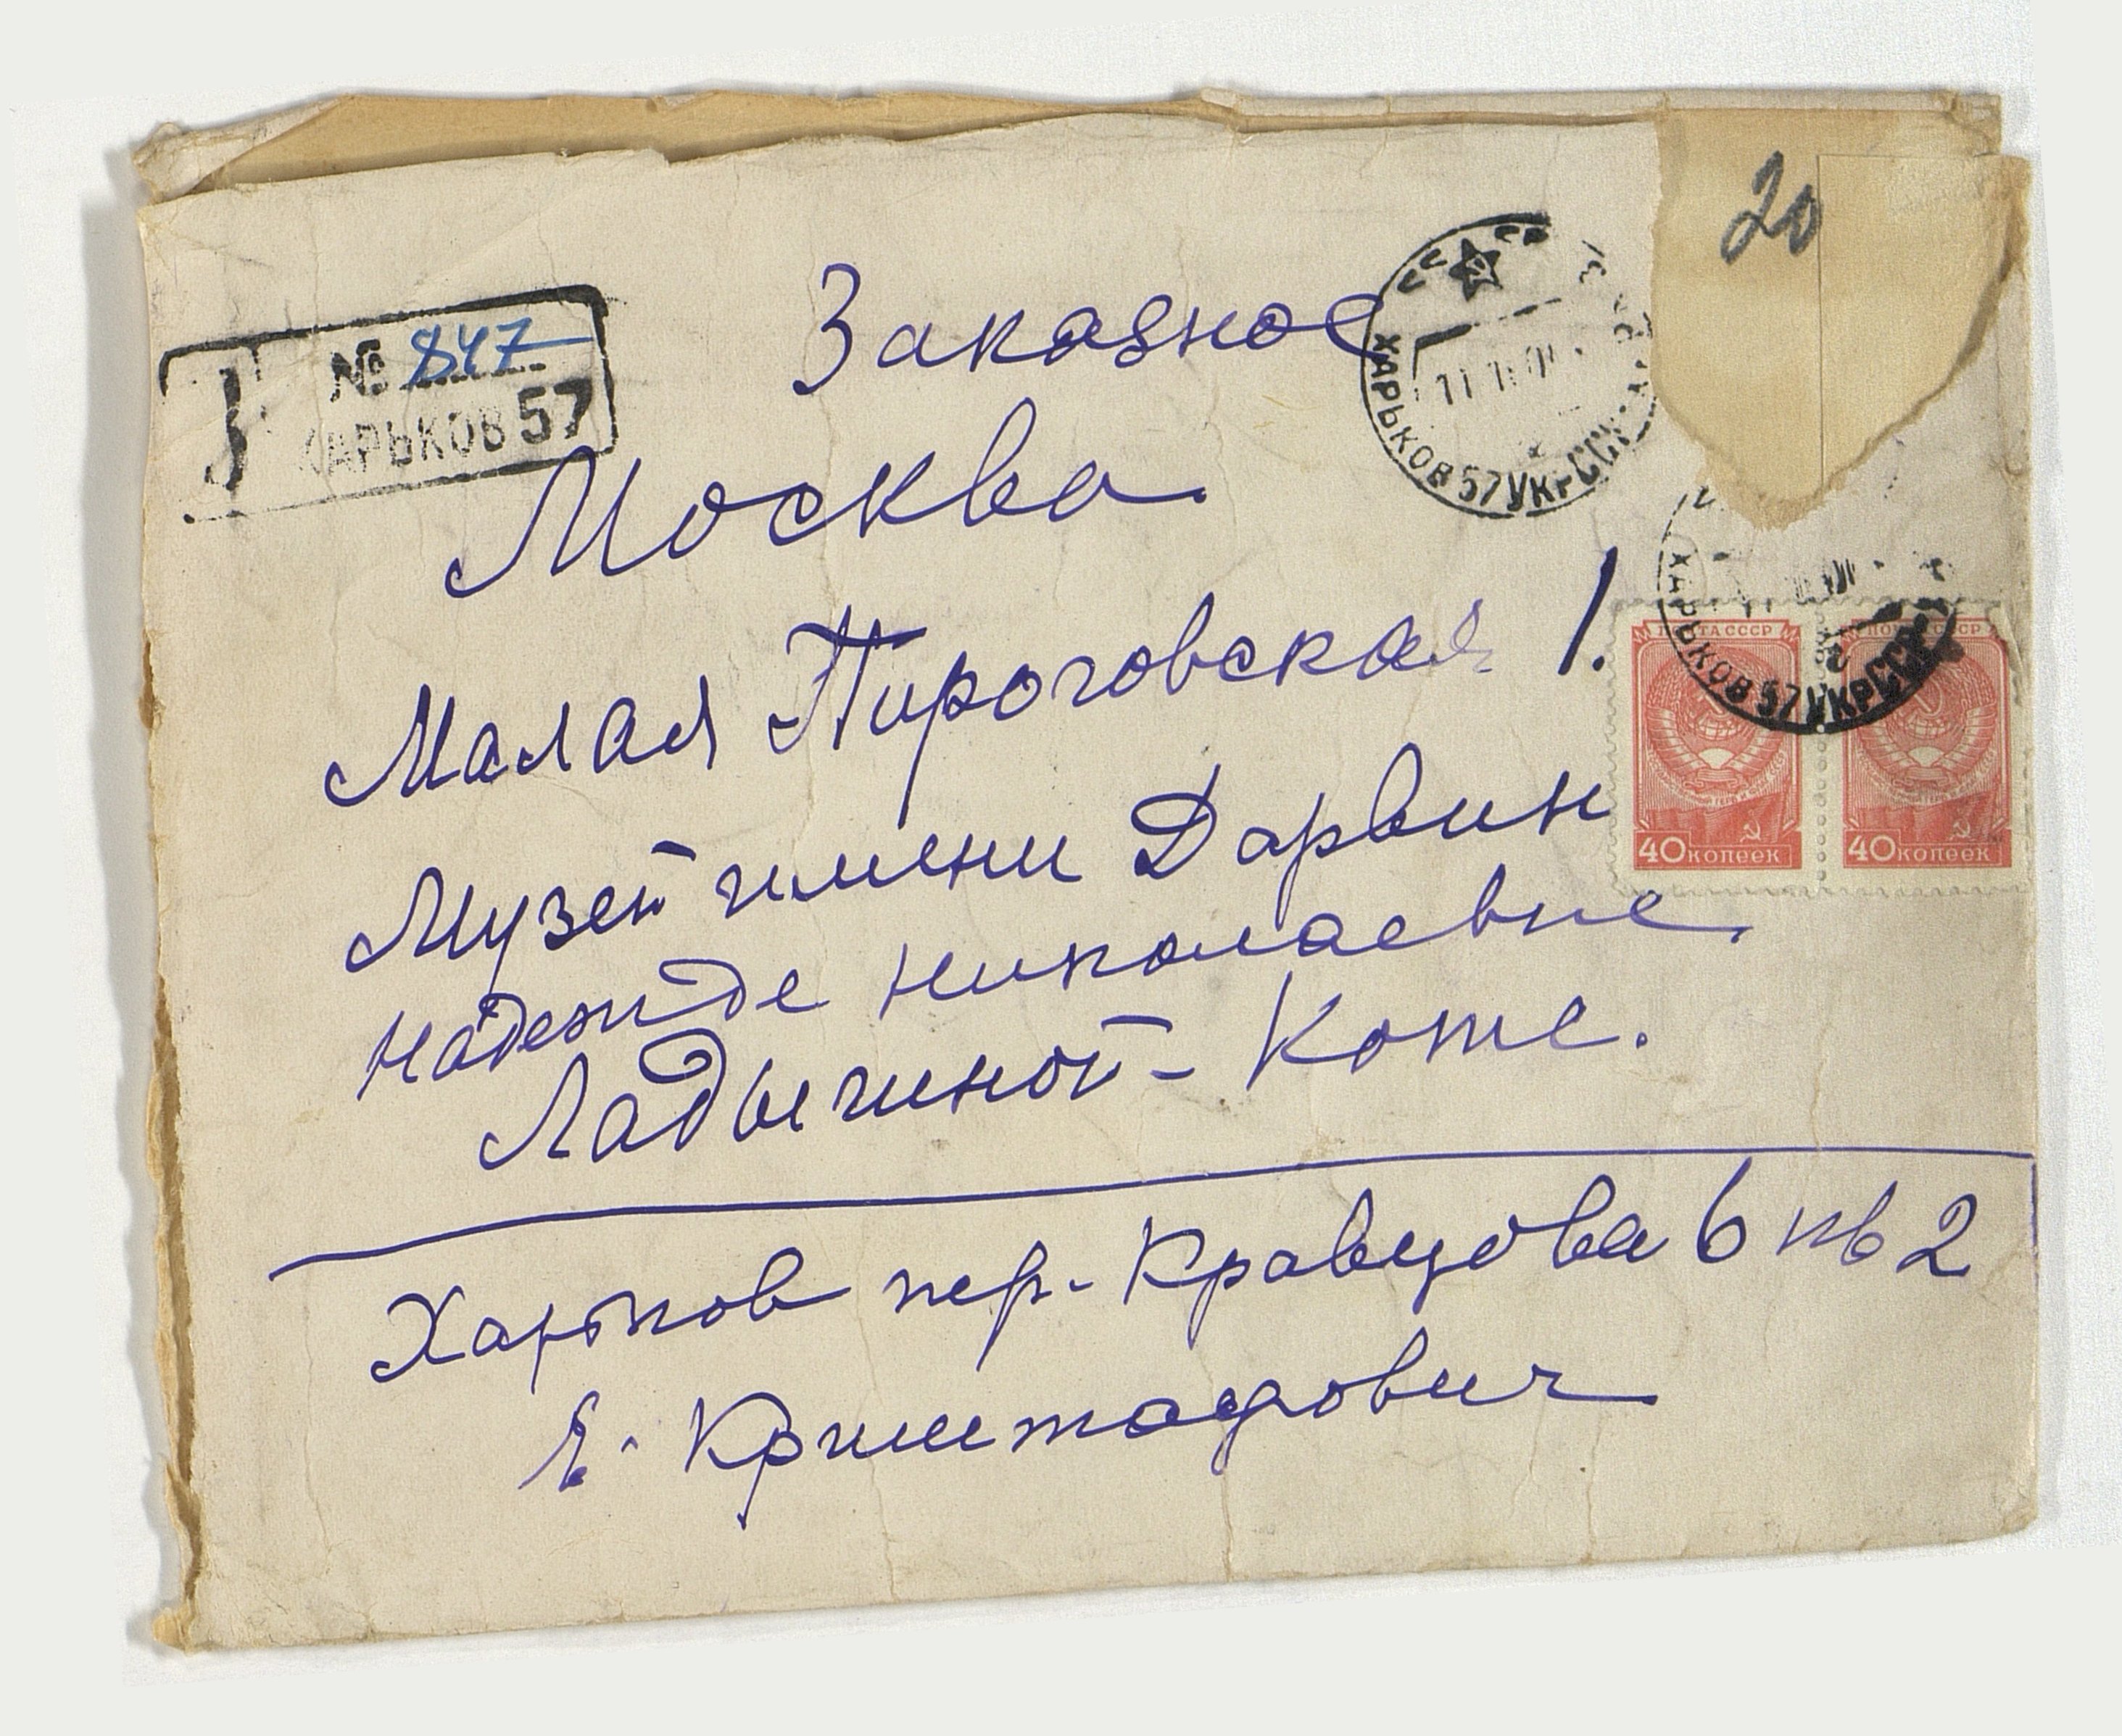 20
Заказное
№ 847
ХАРЬКОВ 57
ХАРЬКОВ 57 УКР.ССР
Москва
Малая Пироговская 1.
ХАРЬКОВ 57 УКР ССР
ПОЧТА СССР ПОЧТА СССР
40 КОПЕЕК 40 КОПЕЕК
Музей имени Дарвин
Надежде Николаевне
Ладыгиной-Котс.
Харьков пер. Кравцова 6 кв 2
Е. Криштафович